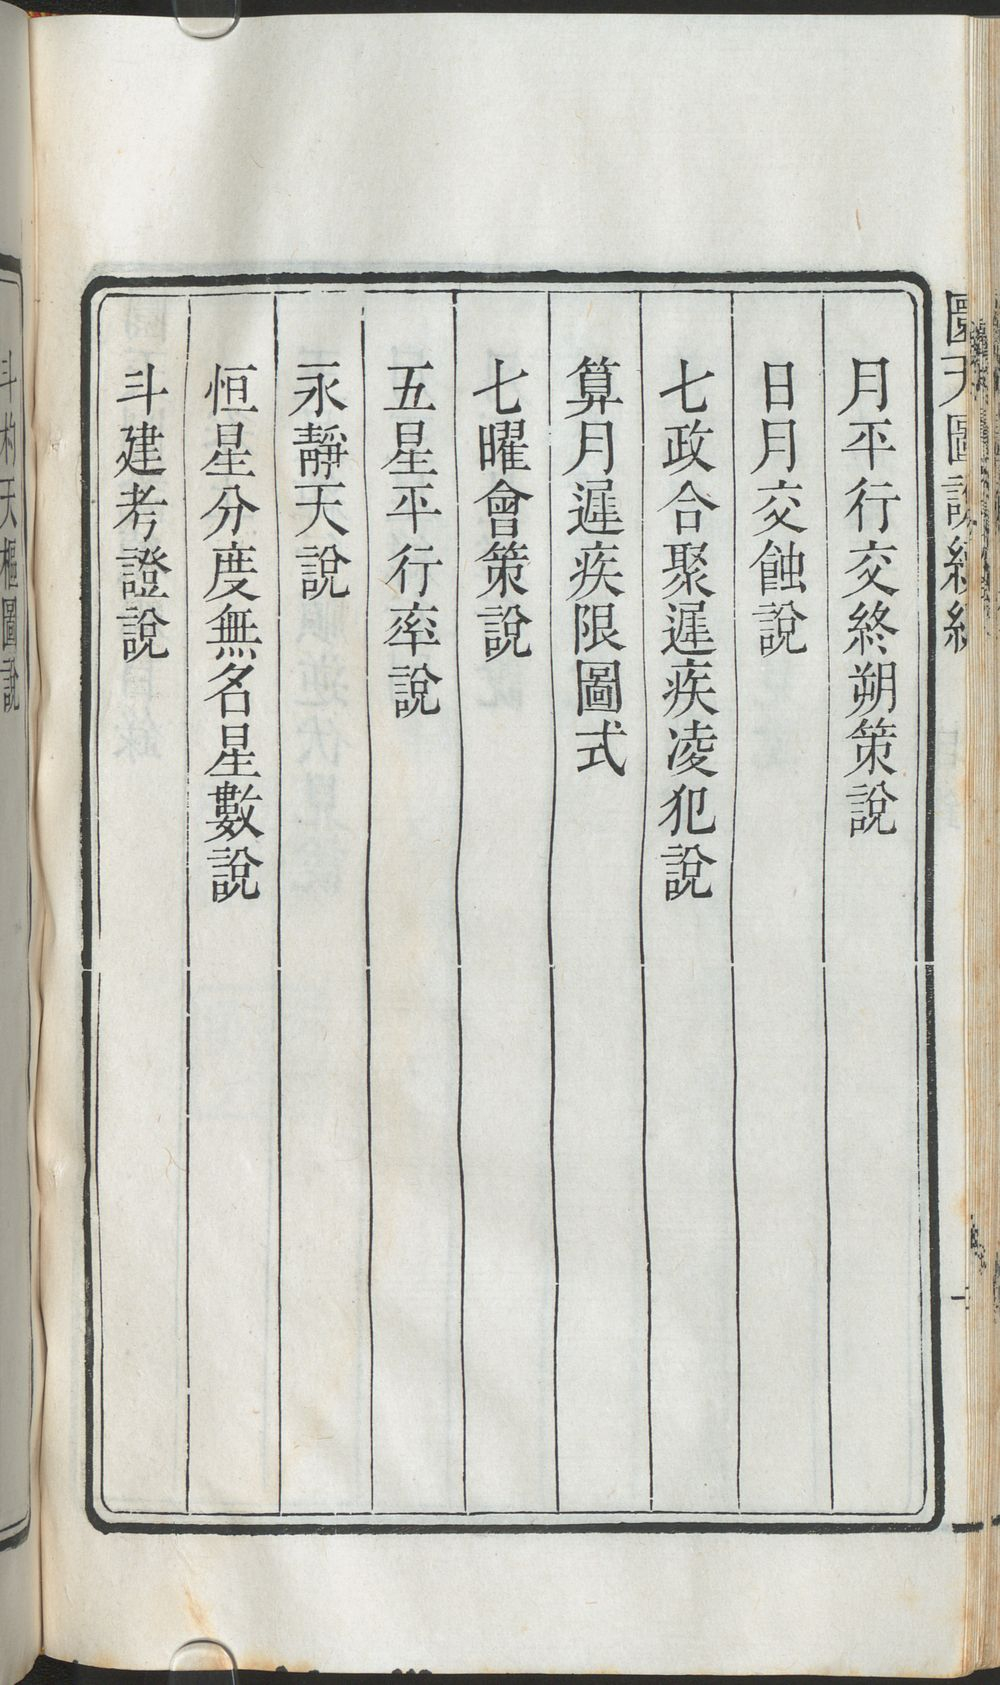 月平行交終朔策說
日月交蝕說
七政合聚遲疾凌犯說
算月遲疾限圖式
七曜會策說
五星平行率說
永靜天說
恒星分度無名星數說
斗建考證說
斗杓天樞圖說